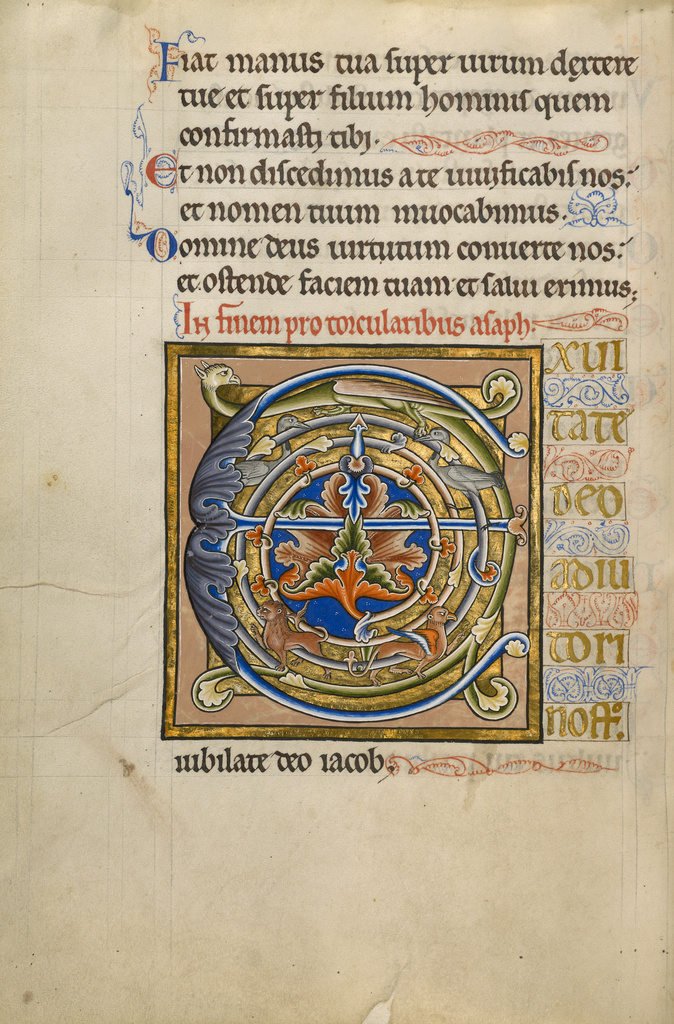 Fiat manus tua super uirum dextere
tue et super filium hominis quem
confirmasti tibi.
Et non discedimus a te uiuificabis nos:
et nomen tuum inuocabimus.
Domine deus uirtutum conuerte nos:
et ostende faciem tuam et salui erimus;
In finem pro torcularibus asaph:
EXUl
tate
deo
adiu
tori
noſtꝛo.
iubilate deo iacob.